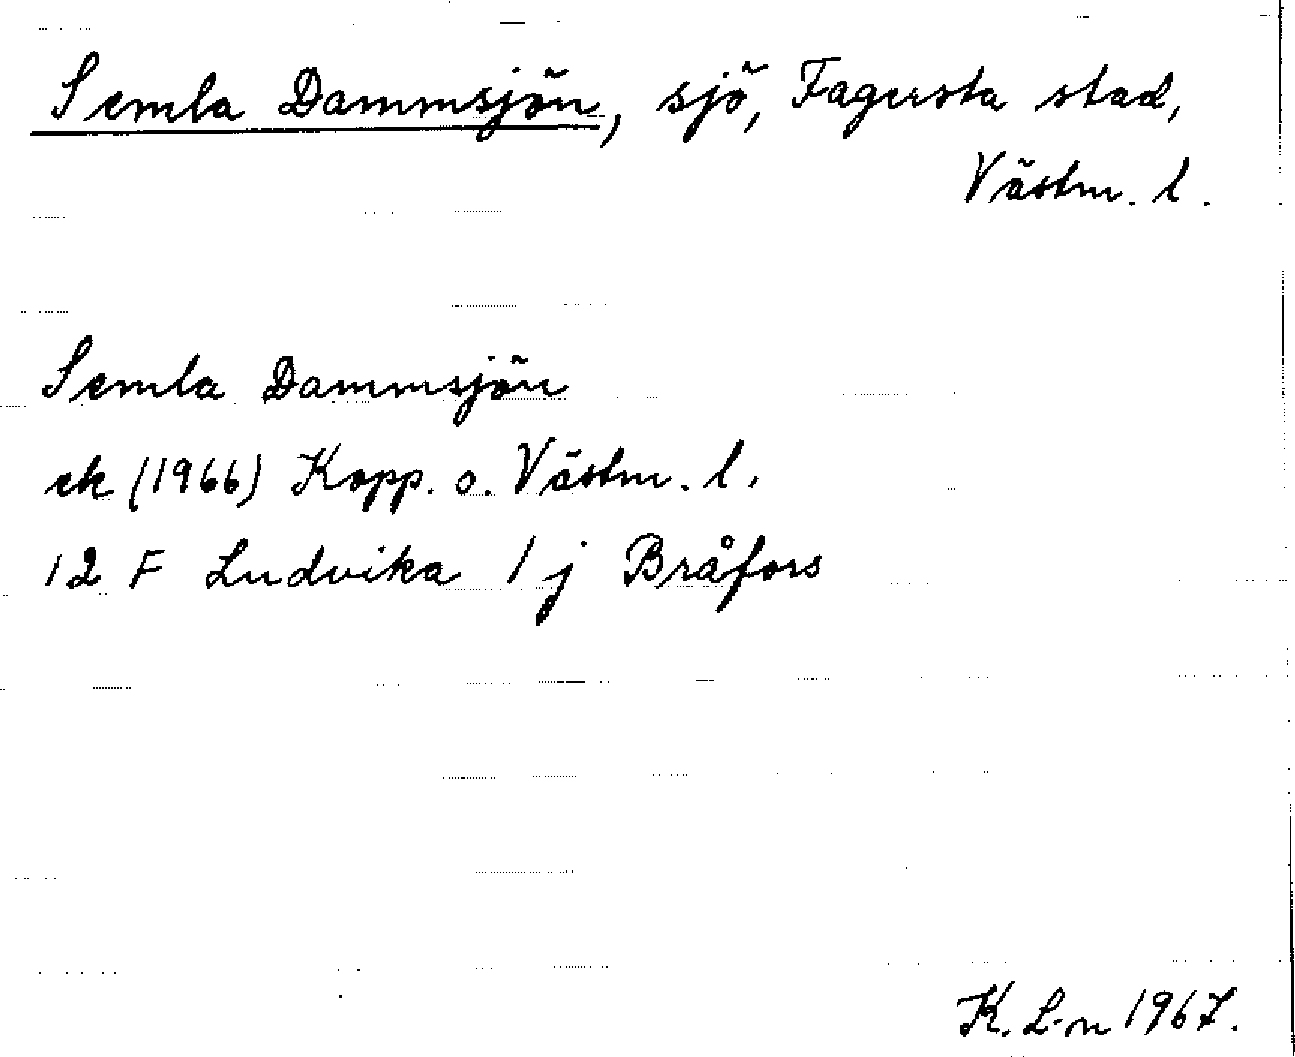 Semla Dammsjön, sjö, Fagersta stad,
Västm. l.
Semla Dammsjön
ek (1966) Kopp. o. Västm. l.
12 F Ludvika 1 j Bråfors
K. L-n 1967.